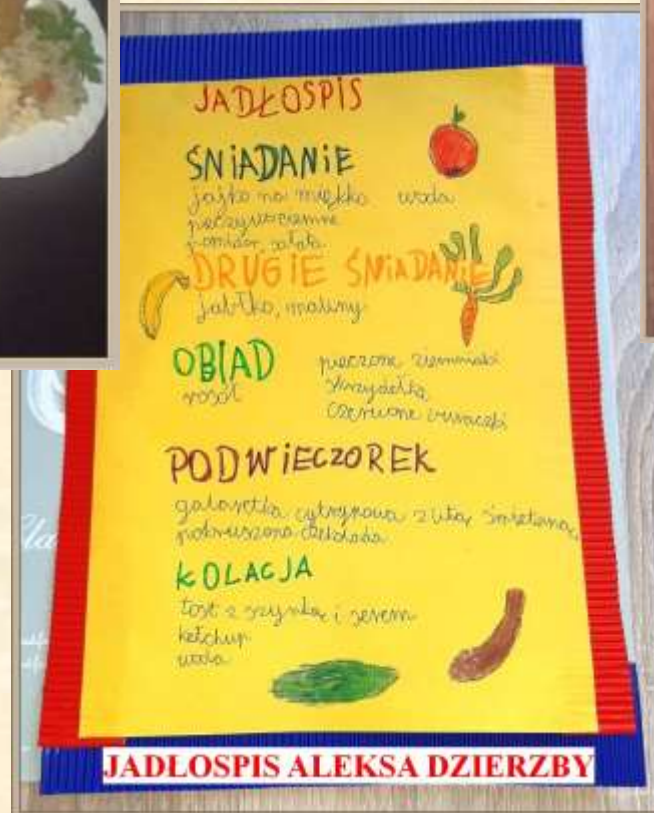 JADŁOSPIS
ŚNIADANIE
jajko na miękko woda
pieczywo ciemne
pomidor sałata
DRUGIE ŚNIADANIE
jabłko, maliny
OBIAD
rosół
pieczone ziemniaki
skrzydełka
czerwone buraczki
PODWIECZOREK
galaretka cytrynowa z bitą śmietaną,
pokruszona czekolada
KOLACJA
tost z szynką i serem
ketchup
woda
JADŁOSPIS ALEKSA DZIERZBY